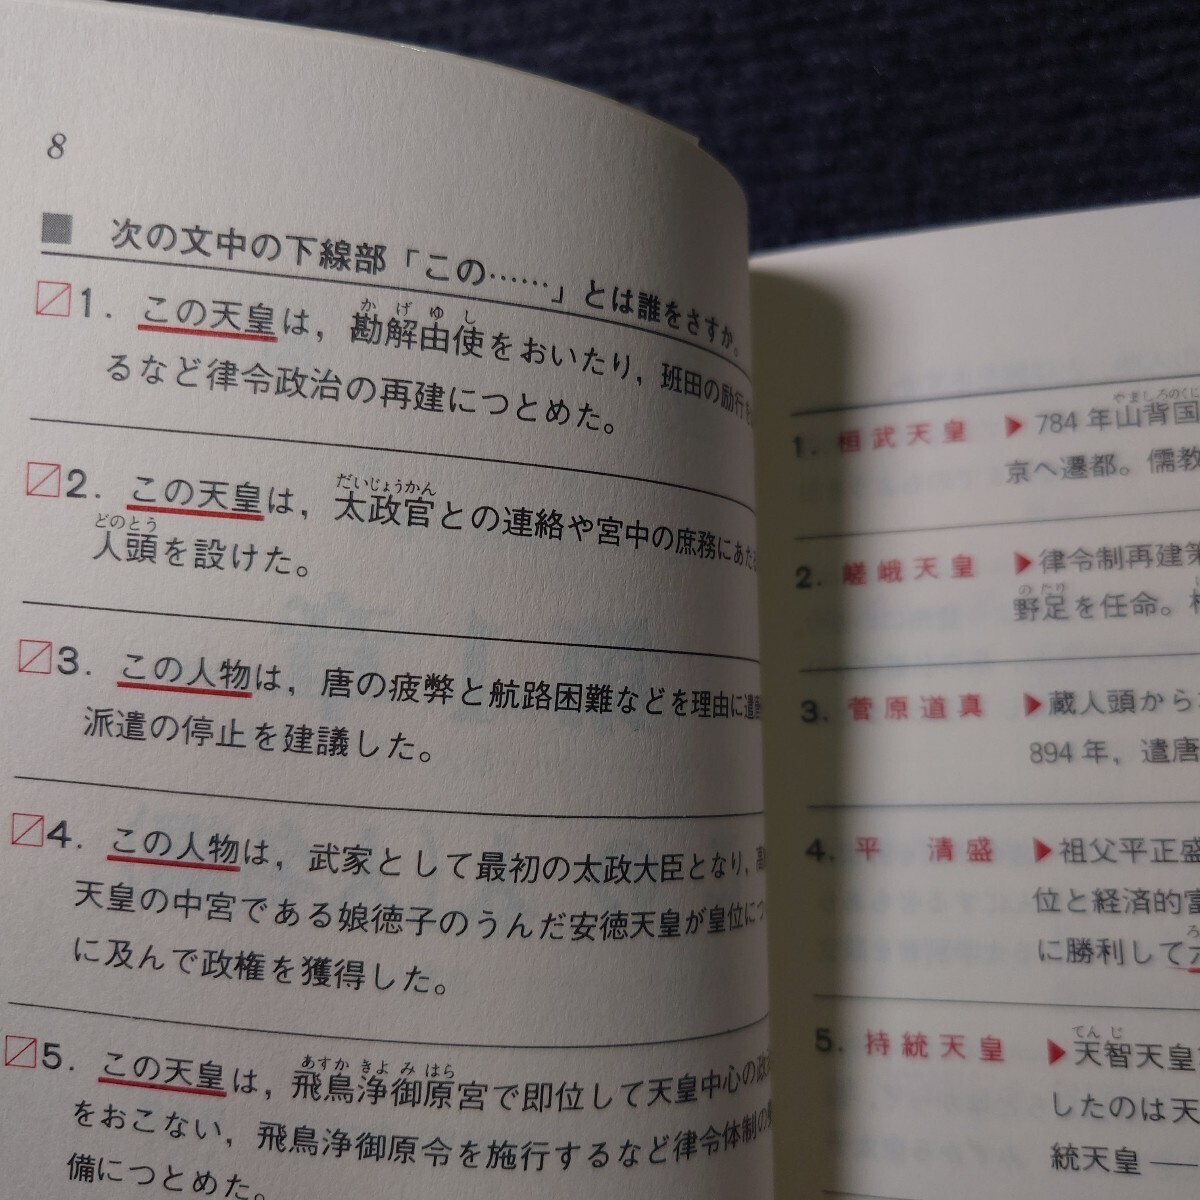 8
■ 次の文中の下線部「この……」とは誰をさすか。
1. この天皇は，勘解由使をおいたり，班田の励行を
かげゆし
るなど律令政治の再建につとめた。
2. この天皇は，太政官との連絡や宮中の庶務にあたる
だいじょうかん
人頭を設けた。
どのとう
3. この人物は，唐の疲弊と航路困難などを理由に遣唐
派遣の停止を建議した。
4. この人物は，武家として最初の太政大臣となり，高
天皇の中宮である娘徳子のうんだ安徳天皇が皇位につ
に及んで政権を獲得した。
5. この天皇は，飛鳥浄御原宮で即位して天皇中心の政
あすかきよみはら
をおこない，飛鳥浄御原令を施行するなど律令体制の
備につとめた。
1. 桓武天皇 ▶784年山背国
やましろのくに
京へ遷都。儒教
2. 嵯峨天皇 ▶律令制再建策
野足を任命。
のたり
3. 菅原道真 ▶蔵人頭から
894年，遣唐
4. 平 清盛 ▶祖父平正盛
位と経済的富
に勝利して六
ろ
5. 持統天皇 ▶天智天皇
てんじ
したのは天
統天皇―